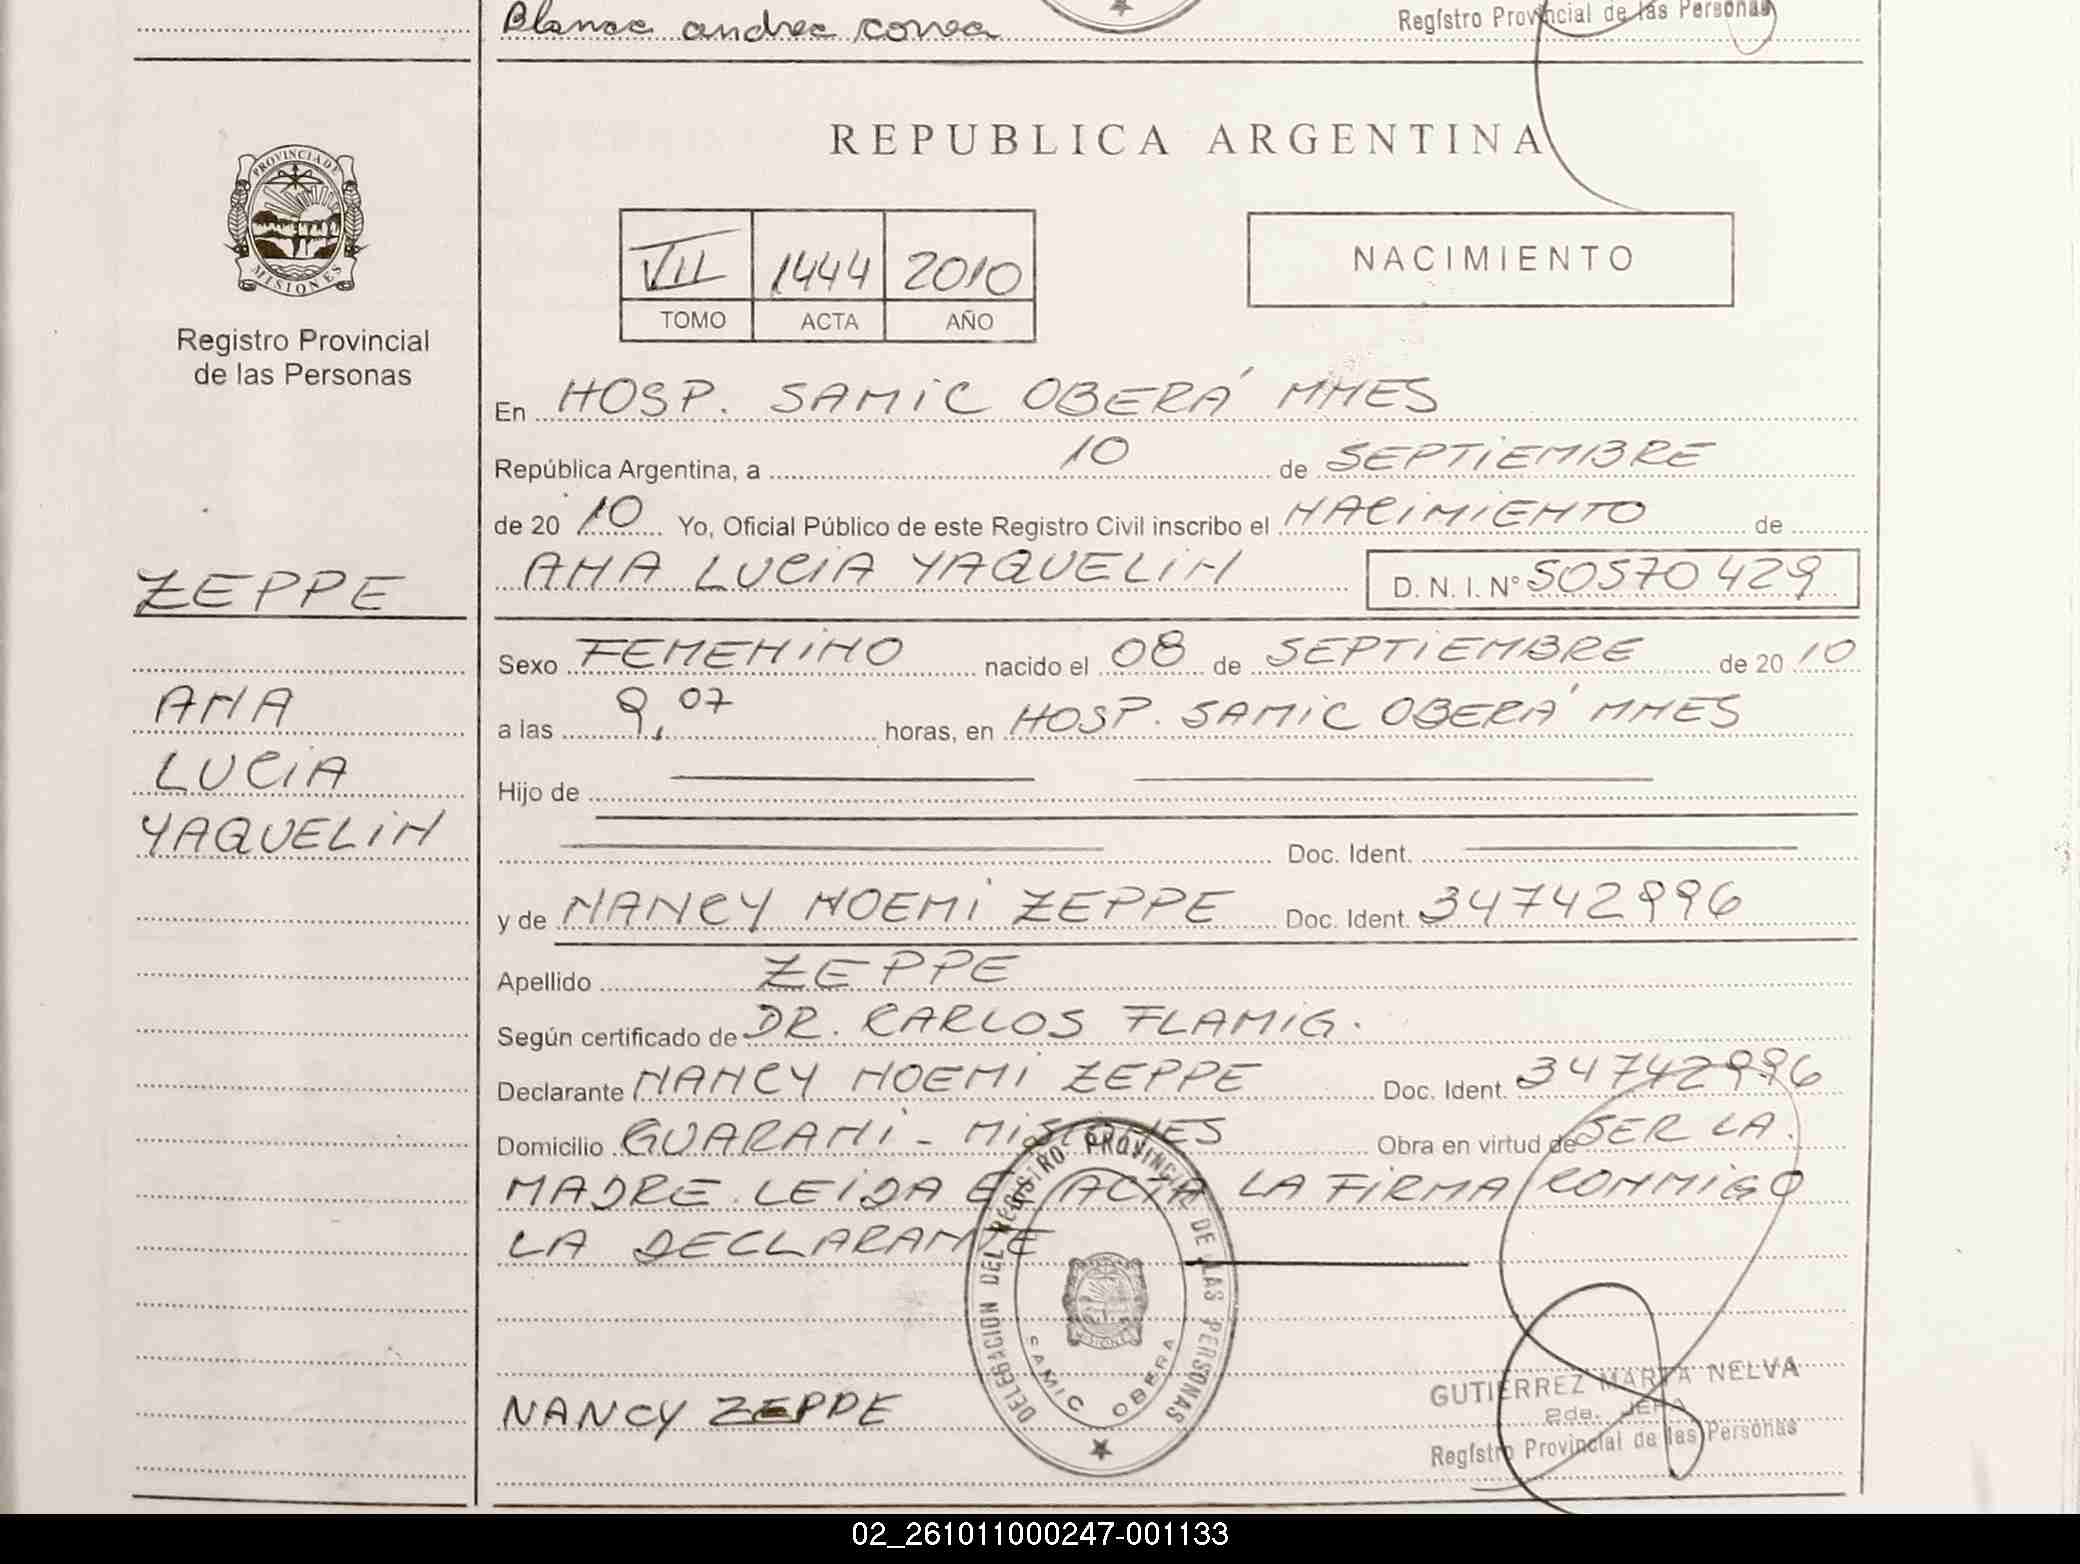 Blanca andrea correa
Registro Provincial de las Personas
PROVINCIA DE
MISIONES
Registro Provincial
de las Personas
REPUBLICA ARGENTINA
VII 1444 2010
TOMO ACTA AÑO
NACIMIENTO
En HOSP. SAMIC OBERÁ MNES
República Argentina, a 10 de SEPTIEMBRE
de 20 10 Yo, Oficial Público de este Registro Civil inscribo el NACIMIENTO de
ANA LUCIA YAQUELIN D. N. I. N° 50570429
ZEPPE
ANA
LUCIA
YAQUELIN
Sexo FEMENINO nacido el 08 de SEPTIEMBRE de 20 10
a las 9,07 horas, en HOSP. SAMIC OBERÁ MNES
Hijo de
Doc. Ident.
y de NANCY NOEMI ZEPPE Doc. Ident. 34742996
Apellido ZEPPE
Según certificado de DR. CARLOS FLAMIG.
Declarante NANCY NOEMI ZEPPE Doc. Ident. 34742996
Domicilio GUARANI - MISIONES Obra en virtud de SER LA
MADRE. LEIDA EL ACTA LA FIRMA CONMIGO
LA DECLARANTE
DELEGACION DEL REGISTRO PROVINCIAL DE LAS PERSONAS
SAMIC OBERA
NANCY ZEPPE
GUTIERREZ MARTA NELVA
2da. JEFA
Registro Provincial de las Personas
02_261011000247-001133